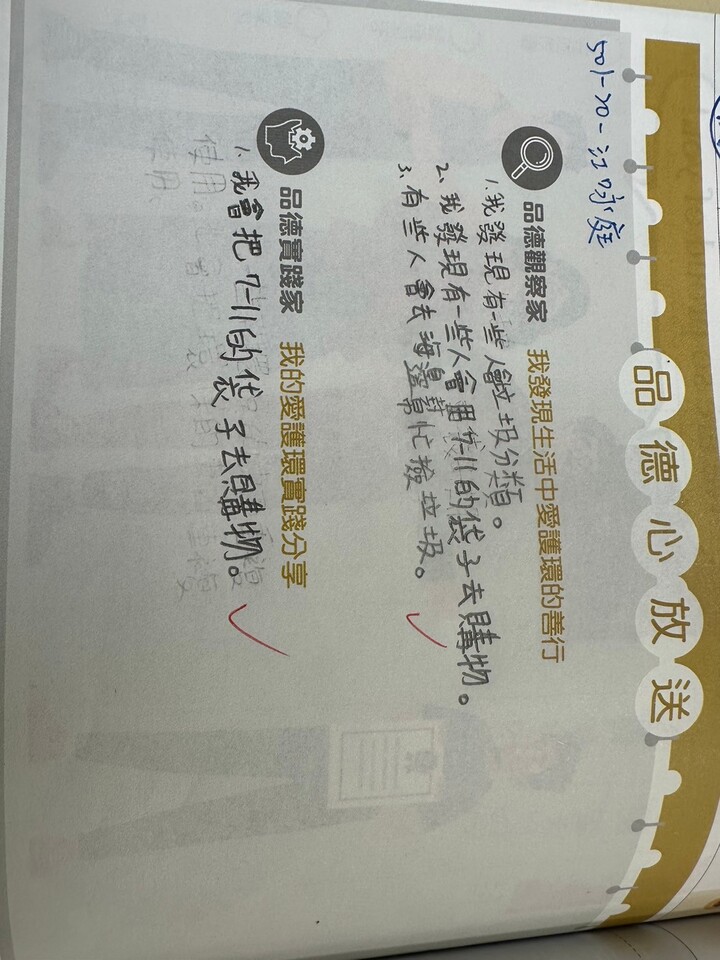 品德心放送
501-20-江咏庭
品德觀察家 我發現生活中愛護環的善行
1.我發現有一些人會垃圾分類。
2.我發現有一些人會用7-11的袋子去購物。
3.有些人會去海邊幫忙撿垃圾。
品德實踐家 我的愛護環實踐分享
1.我會把7-11的袋子去購物。